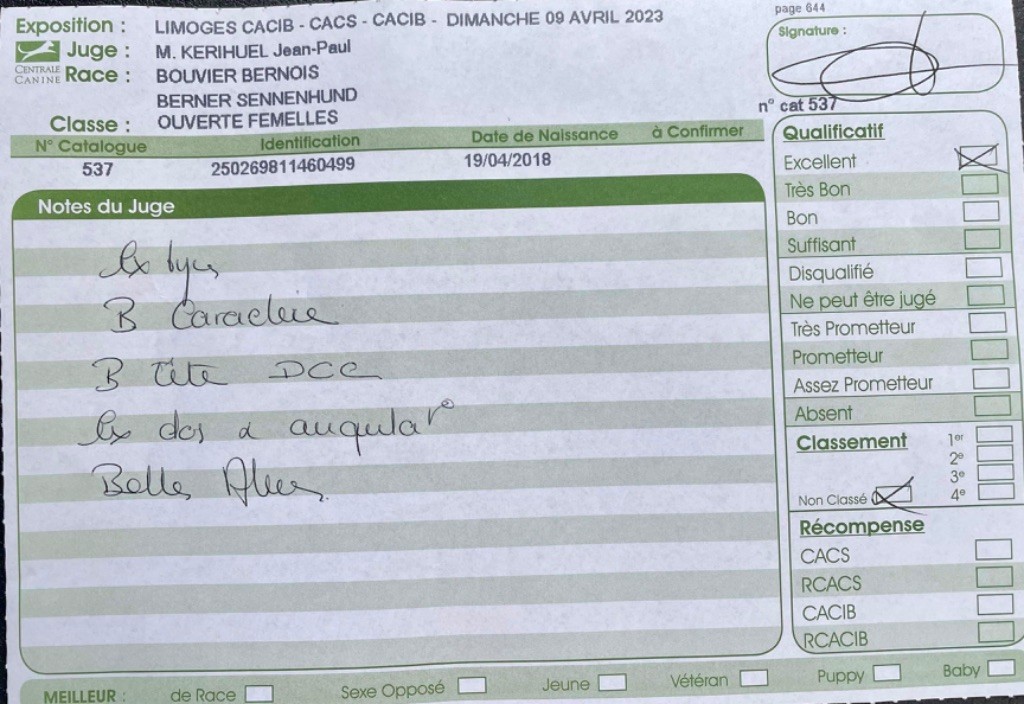 Exposition : LIMOGES CACIB - CACS - CACIB - DIMANCHE 09 AVRIL 2023
CENTRALE CANINE
Juge : M. KERIHUEL Jean-Paul
Race : BOUVIER BERNOIS
BERNER SENNENHUND
Classe : OUVERTE FEMELLES
N° Catalogue Identification Date de Naissance à Confirmer
537 250269811460499 19/04/2018
Notes du Juge
Ex type
B Caractère
B tête DCC
Ex dos angulat°
Belles
page 644
Signature :
n° cat 537
Qualificatif
Excellent
Très Bon
Bon
Suffisant
Disqualifié
Ne peut être jugé
Très Prometteur
Prometteur
Assez Prometteur
Absent
Classement 1er
2e
3e
Non Classé 4e
Récompense
CACS
RCACS
CACIB
RCACIB
MEILLEUR : de Race Sexe Opposé Jeune Vétéran Puppy Baby